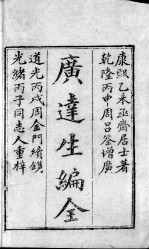 康熙乙未亟齋居士著
乾隆丙申周呂登增廣
廣達生編全
道光丙戌周金門續鐫
光緒丙子同志人重梓